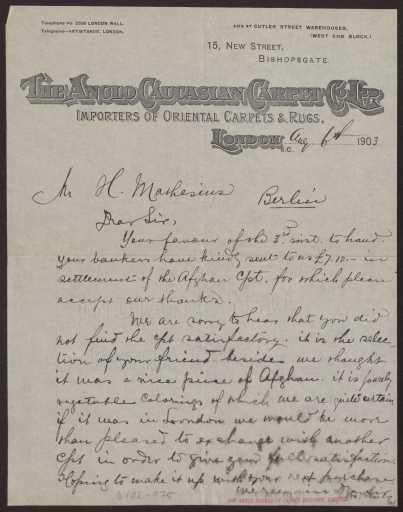 Telephone No 2596 LONDON WALL.
Telegrams—ARTISTANDE, LONDON.
AND AT CUTLER STREET WAREHOUSES,
(WEST END BLOCK.)
15, NEW STREET,
BISHOPSGATE.
THE ANGLO CAUCASIAN CARPET CO. LTD.
IMPORTERS OF ORIENTAL CARPETS & RUGS,
LONDON E.C. Aug. 6th 1903
Mr H. Mathesius Berlin
Dear Sir,
Your favour of the 3rd inst. to hand.
Your bankers have kindly sent to us £7.10.- in
settlement of the Afghan Cpt. for which please
accept our thanks.
We are sorry to hear that you did
not find the cpt satisfactory. it is the selec-
tion of your friend besides we thought
it was a nice piece of Afghan. it is purely
vegetable colorings of which we are quite certain
if it was in London we would be more
than pleased to exchange with another
Cpt in order to give you full satisfaction
Hoping to make it up with your next purchase
we remain